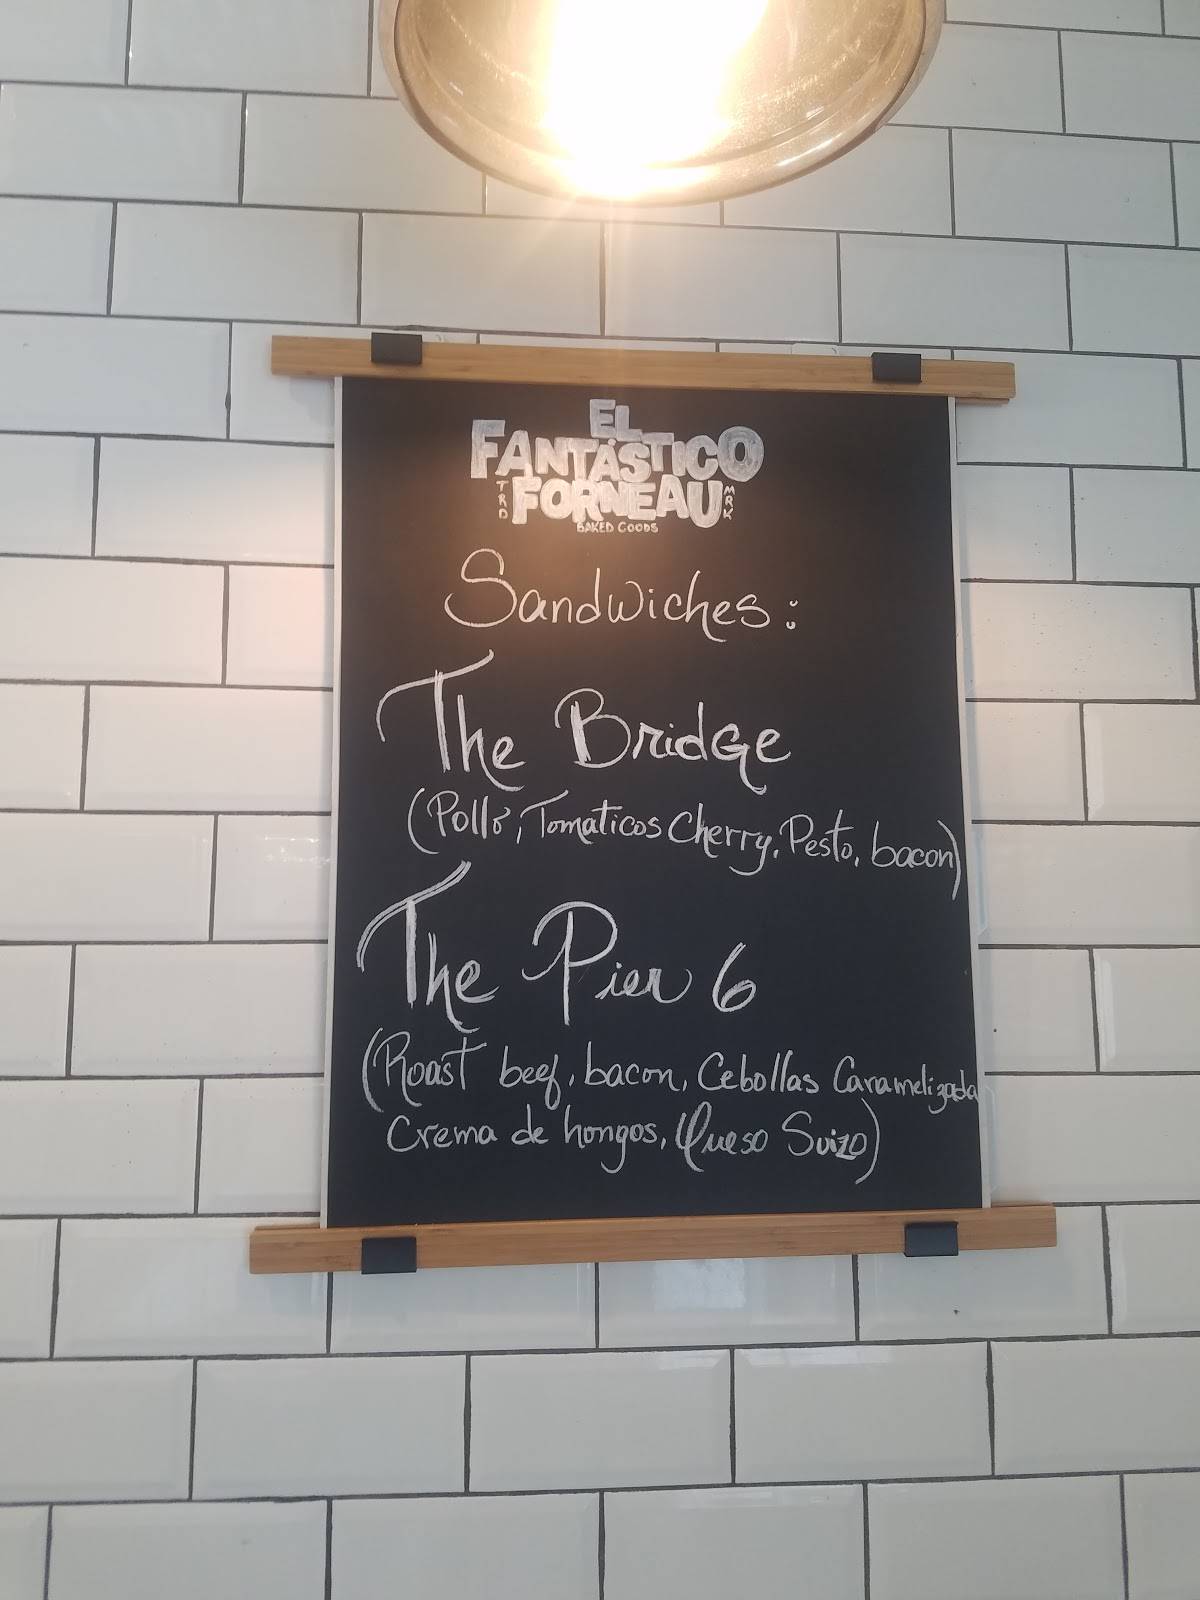 EL
FANTÁSTICO
TRD FORNEAU MRK
BAKED GOODS
Sandwiches:
The Bridge
(Pollo, Tomaticos Cherry, Pesto, bacon)
The Pier 6
(Roast beef, bacon, Cebollas Caramelizada
Crema de hongos, Queso Suizo)